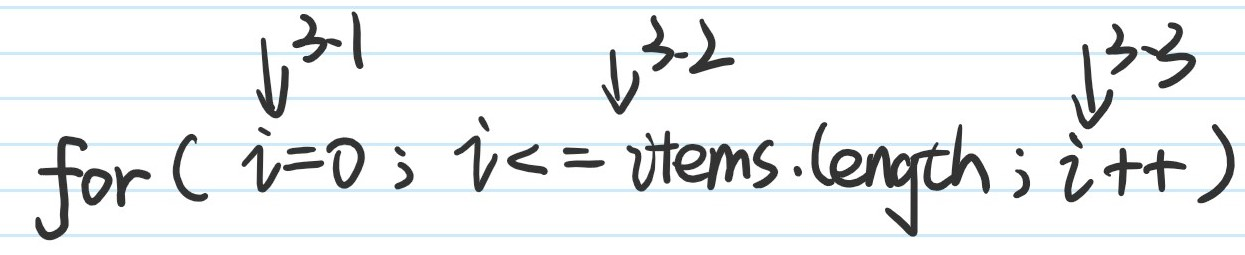 3-1 3-2 3-3
for ( i=0 ; i<= items.length ; i++ )